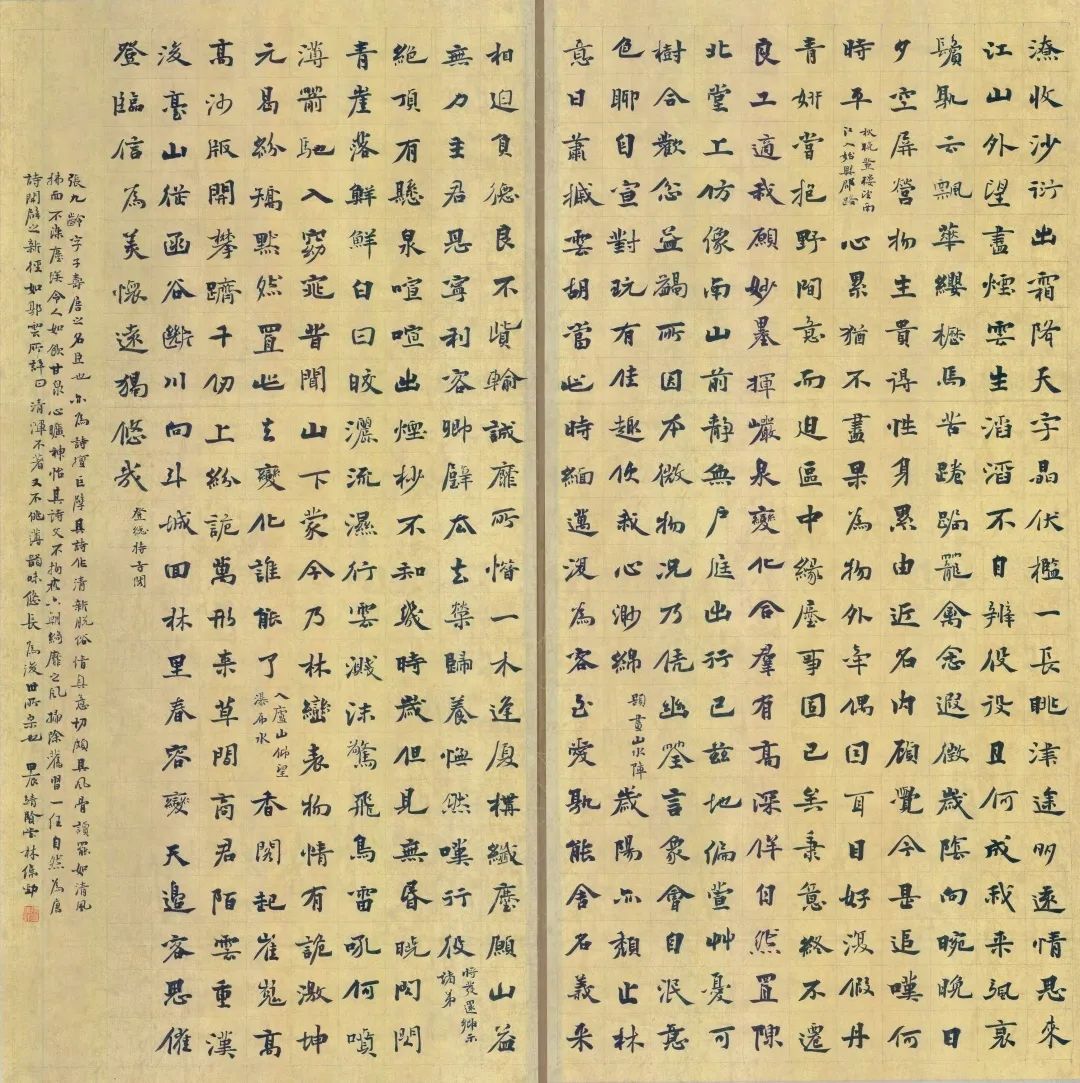 潦收沙衍出霜降天宇晶伏檻一長眺津途眀遠情思來
江山外望盡煙雲生滔滔不自辨役役且何成我來颯衰
鬢孰云飄華纓櫪馬苦踡跼籠禽念遐徵歲陰向晼晚日
夕空屏營物生貴得性身累由近名內顧覺今是追嘆何
時平
秋晚登樓望南
江入始興郡路
心累猶不盡果為物外牽偶因耳目好復假丹
青妍嘗抱野間意而迫區中緣塵事固已矣秉意終不遷
良工適我願妙墨揮巖泉變化合羣有高深侔自然置陳
北堂上仿像南山前靜無戶庭出行已茲地偏萱艸憂可
樹合歡忿益蠲所因本微物況乃憑幽筌言象會自泯意
色聊自宣對玩有佳趣使我心渺綿
題畫山水障
歲陽亦頹止林
意日蕭摵雲胡當此時緬邁復為客至愛孰能舍名義來
相迫負德良不貲輸誠靡所惜一木逢廈構纖塵願山益
無力主君恩寧利客卿璧去去榮歸養憮然嘆行役
將發還鄉示
諸弟
絕頂有懸泉喧喧出煙杪不知幾時歲但見無昏曉閃閃
青崖落鮮鮮白日皎灑流濕行雲濺沫驚飛鳥雷吼何噴
薄箭馳入窈窕昔聞山下蒙今乃林巒表物情有詭激坤
元曷紛矯默然置此去變化誰能了
入廬山仰望
瀑布水
香閣起崔嵬高
高沙版開攀躋千仞上紛詭萬形來草間商君陌雲重漢
後臺山從函谷斷川向斗城回林里春容變天邊客思催
登臨信為美懷遠獨悠哉
登總持寺閣
張九齡字子壽唐之名臣也亦為詩壇巨擘其詩作清新脫俗信真意切頗具風骨讀罷如清風
拂面不染塵埃令人如飲甘泉心曠神怡其詩又不拘於六朝綺靡之風掃除舊習一任自然為唐
詩開闢之新徑如郭雲所評曰清渾不著又不佻薄韻味悠長為後世所宗也甲辰